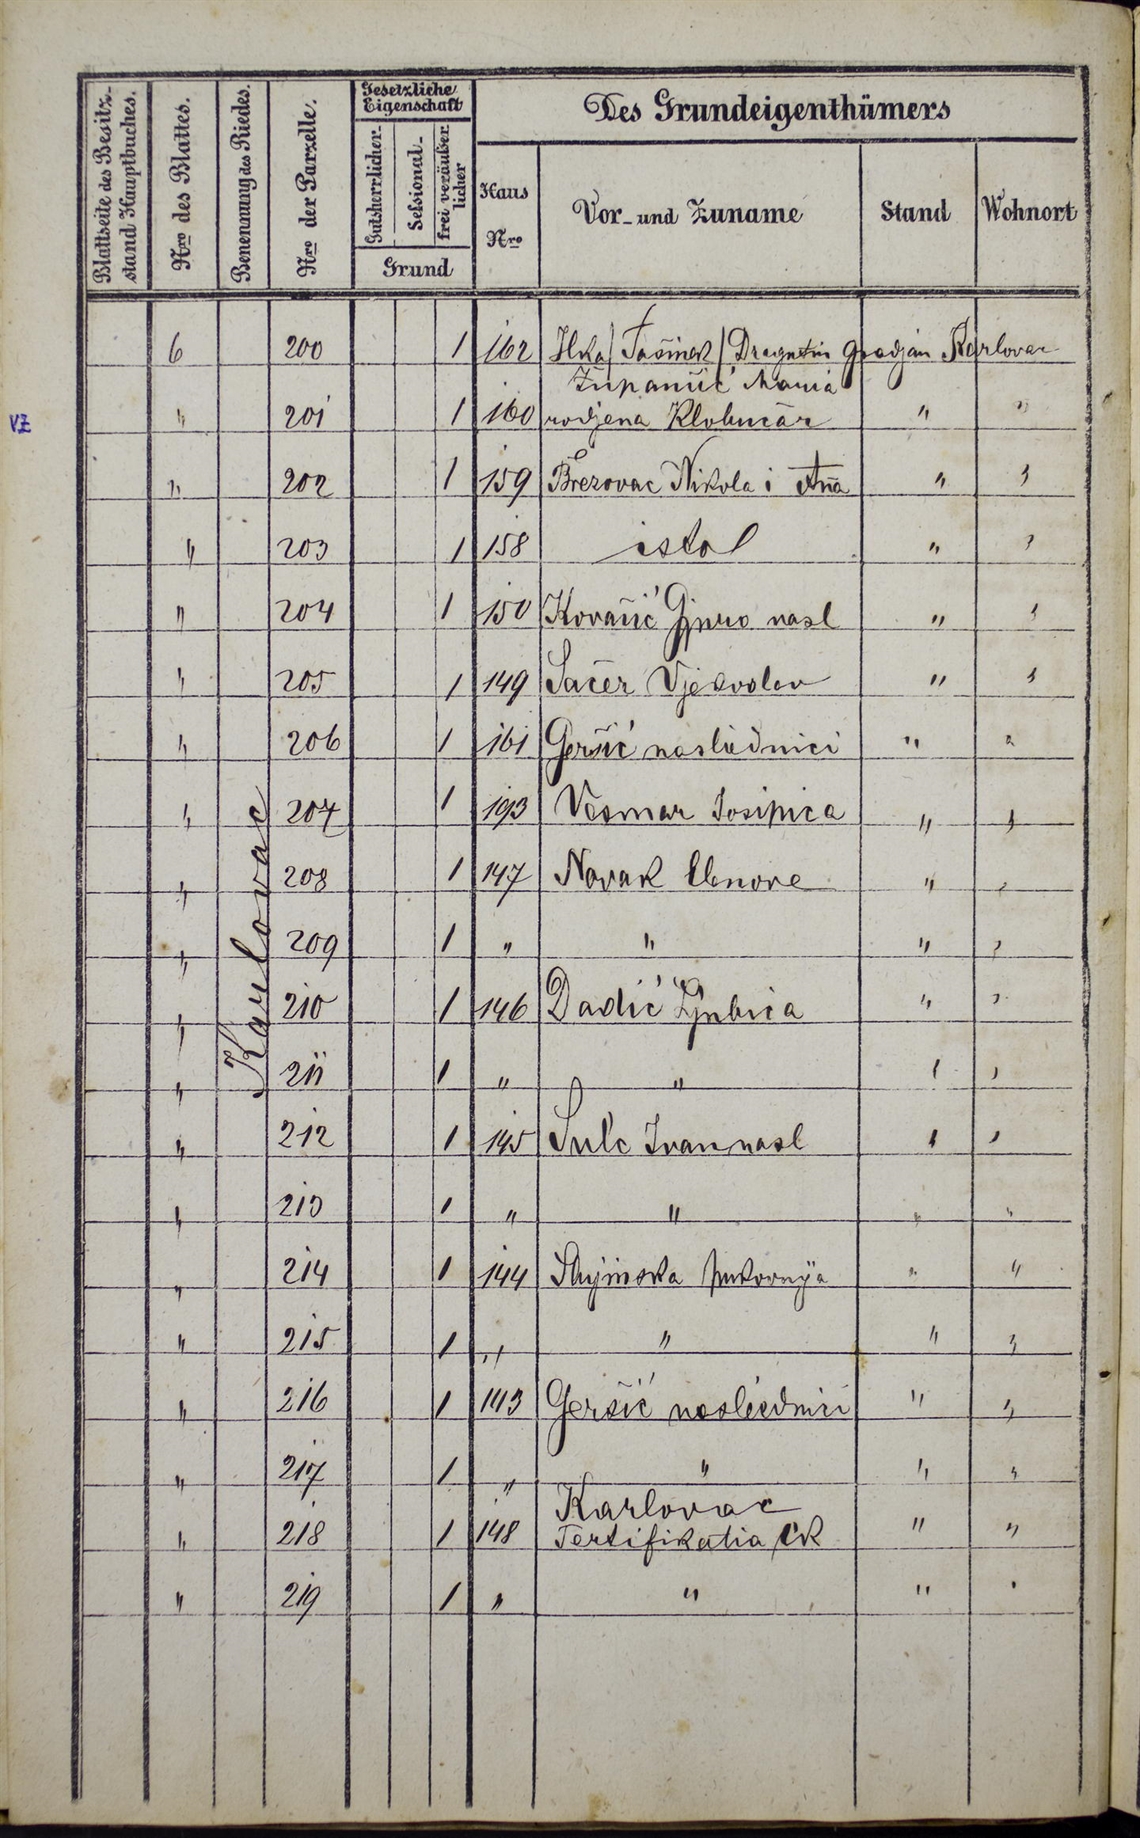 Des Grundeigenthümers
Gesetzliche Eigenschaft
Blattseite des Besitz-stand Hauptbuches.
Nro des Blattes.
Benennung des Riedes.
Nro der Parzelle.
Gutsherrlicher
Sessional-
frei veräußer licher
Grund
Haus Nro
Vor- und Zuname
Stand
Wohnort
Karlovac
VZ
6 200 1 162 Ilka / Tašinek / Dragutin gradjan Karlovac
Županić Maria
" 201 1 160 rodjena Klobučar " "
" 202 1 159 Brezovac Nikola i Ana " "
" 203 1 158 istol " "
" 204 1 150 Kovačić Gjuro nasl " "
" 205 1 149 Sačer Vjekoslav " "
" 206 1 161 Geršić nasliednici " "
" 207 1 193 Vesmar Josipica " "
" 208 1 147 Novak Elenore " "
" 209 1 " " " "
" 210 1 146 Dadić Ljubica " "
" 211 1 " " " "
" 212 1 145 Šulc Ivan nasl " "
" 213 1 " " " "
" 214 1 144 " "
" 215 1 " " " "
" 216 1 143 Geršić nasliednici " "
" 217 1 " " " "
Karlovac
" 218 1 148 Fertifikatia CK " "
" 219 1 " " " "